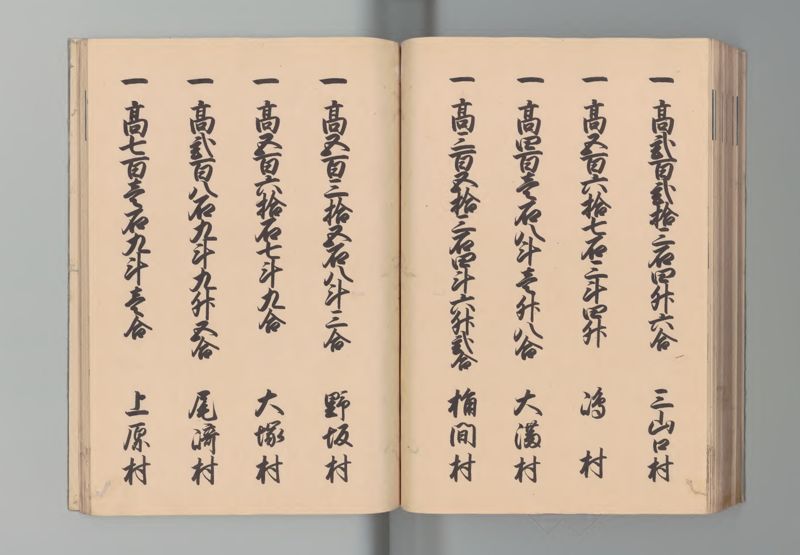 一 高弐百弐拾三石四升六合 三山口村
一 高五百六拾七石三斗四升 嶋村
一 高四百壱石八斗壱升八合 大満村
一 高三百五拾三石四斗六升弐合 桶間村
一 高五百三拾五石八斗三合 野坂村
一 高五百六拾石七斗九合 大塚村
一 高弐百八石九斗九升五合 尾﨑村
一 高七百壱石九斗壱合 上原村